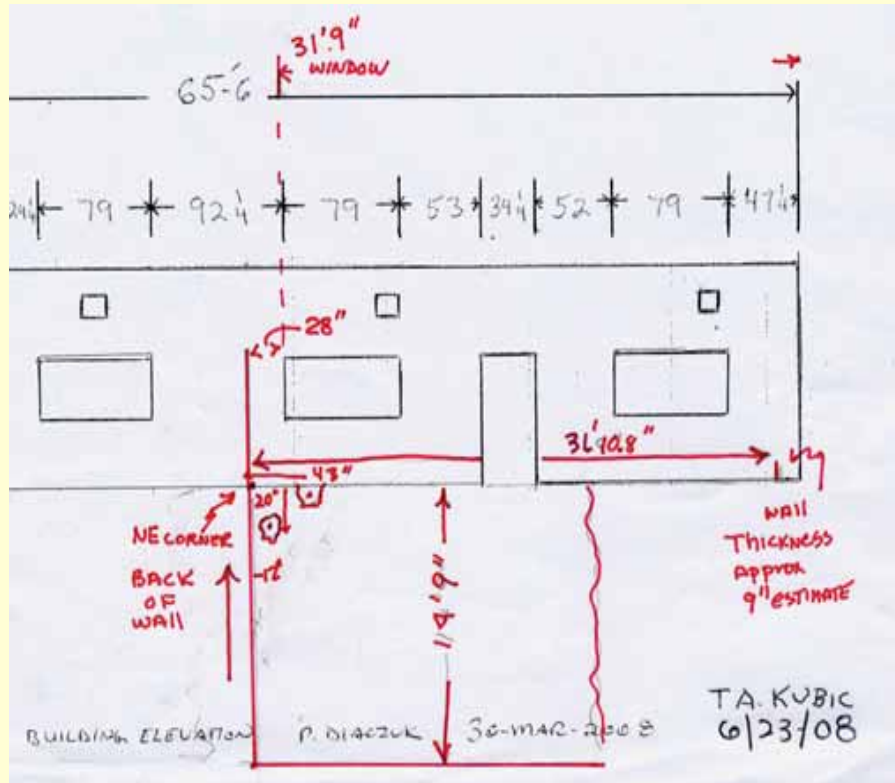 31'9"
WINDOW
65-6
24¼ 79 92¼ 79 53 34¼ 52 79 47¼
28"
48"
20"
NE CORNER
BACK
OF
WALL
14'9"
WALL
THICKNESS
Approx
9" ESTIMATE
BUILDING ELEVATION P. DIACZUK 30-MAR-2008
T.A. KUBIC
6/23/08